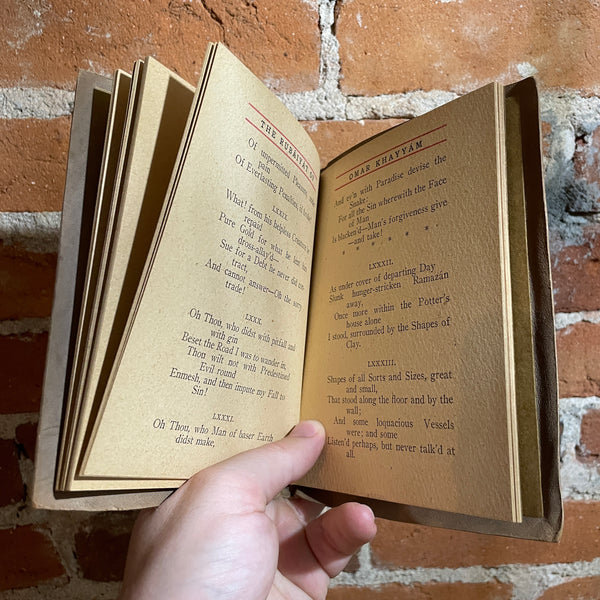 THE RUBÁIYÁT OF
Of unpermitted Pleasure, under
pain
Of Everlasting Penalties, if broke!
LXXIX.
What! from his helpless Creature be
repaid
Pure Gold for what he lent him
dross-allay'd—
Sue for a Debt he never did con-
tract,
And cannot answer—Oh the sorry
trade!
LXXX.
Oh Thou, who didst with pitfall and
with gin
Beset the Road I was to wander in,
Thou wilt not with Predestined
Evil round
Enmesh, and then impute my Fall to
Sin!
LXXXI.
Oh Thou, who Man of baser Earth
didst make,
OMAR KHAYYÁM
And ev'n with Paradise devise the
Snake:
For all the Sin wherewith the Face
of Man
Is blacken'd—Man's forgiveness give
—and take!
* * * * * *
LXXXII.
As under cover of departing Day
Slunk hunger-stricken Ramazán
away,
Once more within the Potter's
house alone
I stood, surrounded by the Shapes of
Clay.
LXXXIII.
Shapes of all Sorts and Sizes, great
and small,
That stood along the floor and by the
wall;
And some loquacious Vessels
were; and some
Listen'd perhaps, but never talk'd at
all.